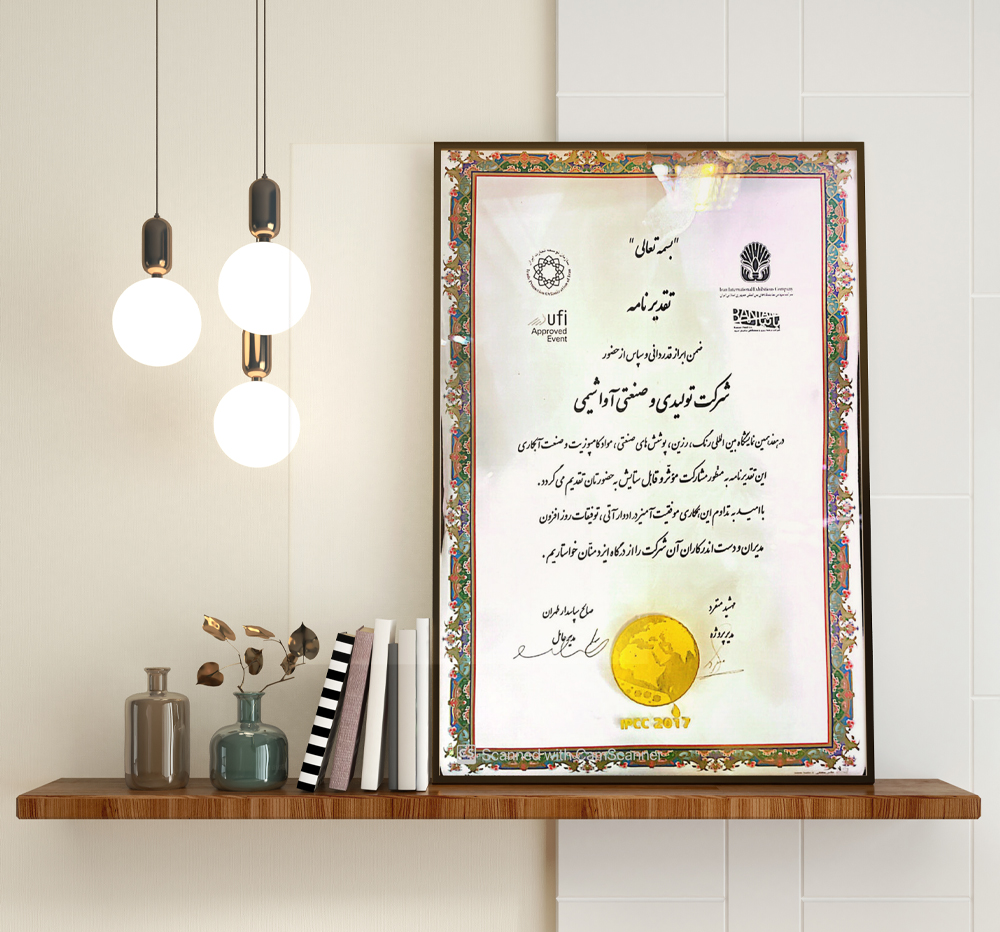 "بسمه تعالی"
Iran International Exhibitions Company
تقدیر نامه
ufi
Approved
Event
ضمن ابراز قدردانی و سپاس از حضور
شرکت تولیدی و صنعتی آوا شیمی
در هفدهمین نمایشگاه بین المللی رنگ، رزین، پوشش های صنعتی، مواد کامپوزیت و صنعت آبکاری
این تقدیر نامه به منظور مشارکت مؤثر و قابل ستایش به حضورتان تقدیم می گردد.
با امید به تداوم این همکاری موفقیت آمیز در ادوار آتی، توفیقات روز افزون
مدیران و دست اندرکاران آن شرکت را از درگاه ایزد منّان خواستاریم.
مهشید منفرد
مدیر پروژه
صالح پاسدار طهران
مدیر عامل
IPCC 2017
CS Scanned with CamScanner